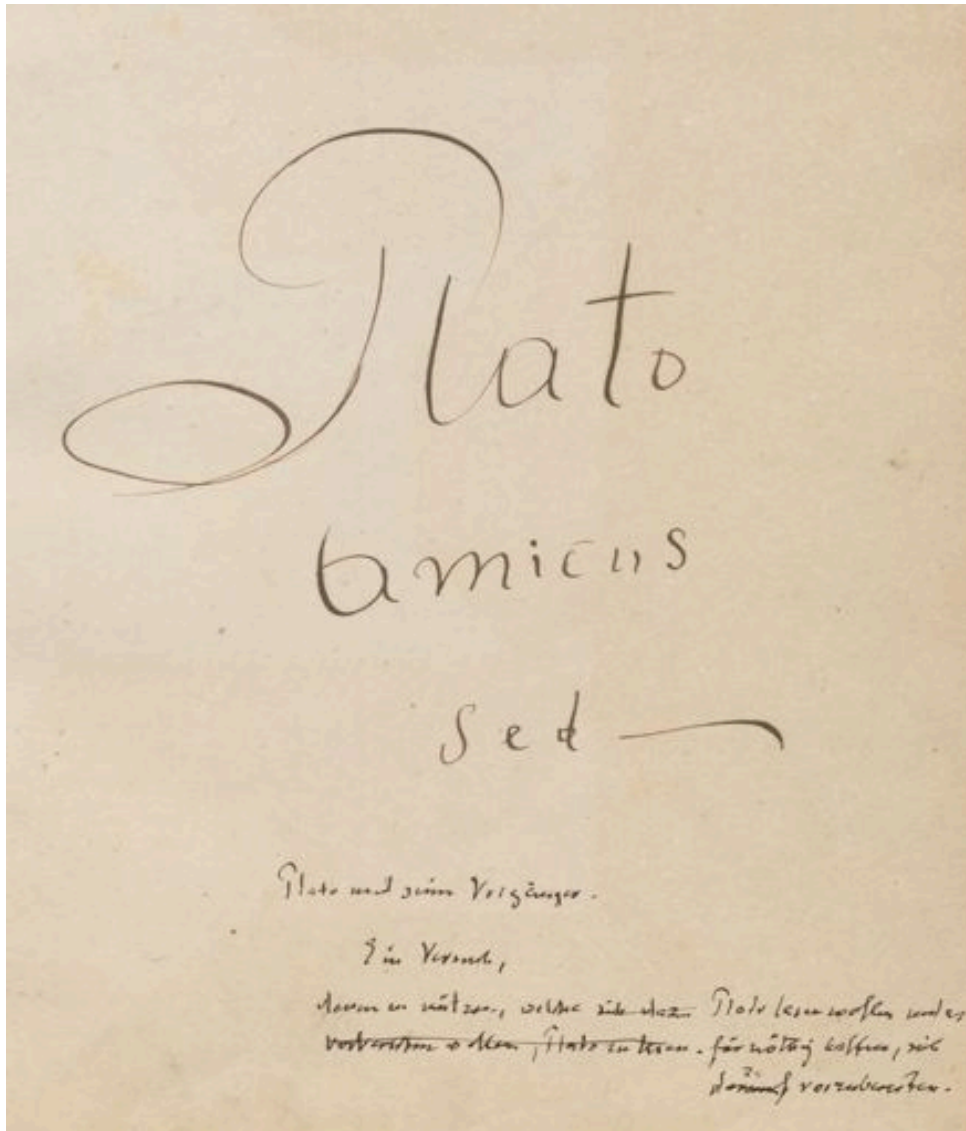 Plato
amicus
sed —
Plato und seine Vorgänger.
Ein Versuch,
denen zu nützen, welche sich dazu Plato lesen wollen und es
vorbereiten wollen, Plato zu lesen. für nöthig halten, sich
darauf zu vorzubereiten.